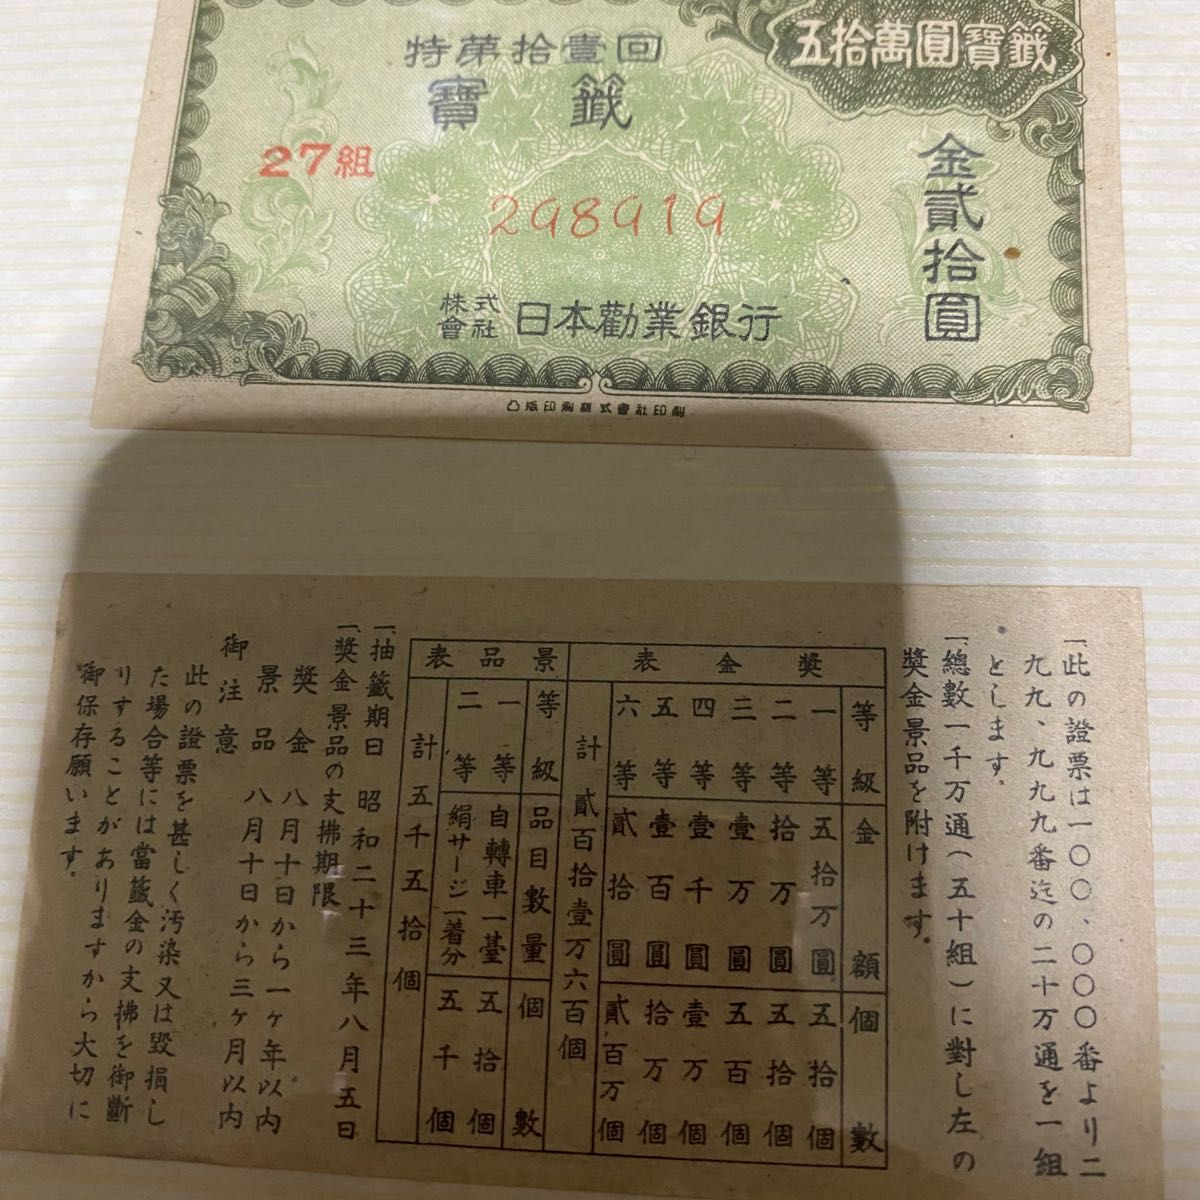 五拾萬圓寶籤
特第拾壹回
寶籤
27組
298919
金貳拾圓
株式會社 日本勸業銀行
凸版印刷株式會社印刷
一、此の證票は一〇〇、〇〇〇番より二
九九、九九九番迄の二十万通を一組
とします。
一、總數一千万通(五十組)に對し左の
獎金景品を附けます。
獎金表
等級 金額 個數
一等 五拾万圓 五拾個
二等 拾万圓 五拾個
三等 壹万圓 五百個
四等 壹千圓 壹万個
五等 壹百圓 拾万個
六等 貳拾圓 貳百万個
計 貳百拾壹万六百個
景品表
等級 品目數量 個數
一等 自轉車一臺 五拾個
二等 絹サージ一着分 五千個
計 五千五拾個
一、抽籤期日 昭和二十三年八月五日
一、獎金景品の支拂期限
獎金 八月十日から一ヶ年以内
景品 八月十日から三ヶ月以内
御注意
此の證票を甚しく汚染又は毀損し
た場合等には當籤金の支拂を御斷
りすることがありますから大切に
御保存願います。